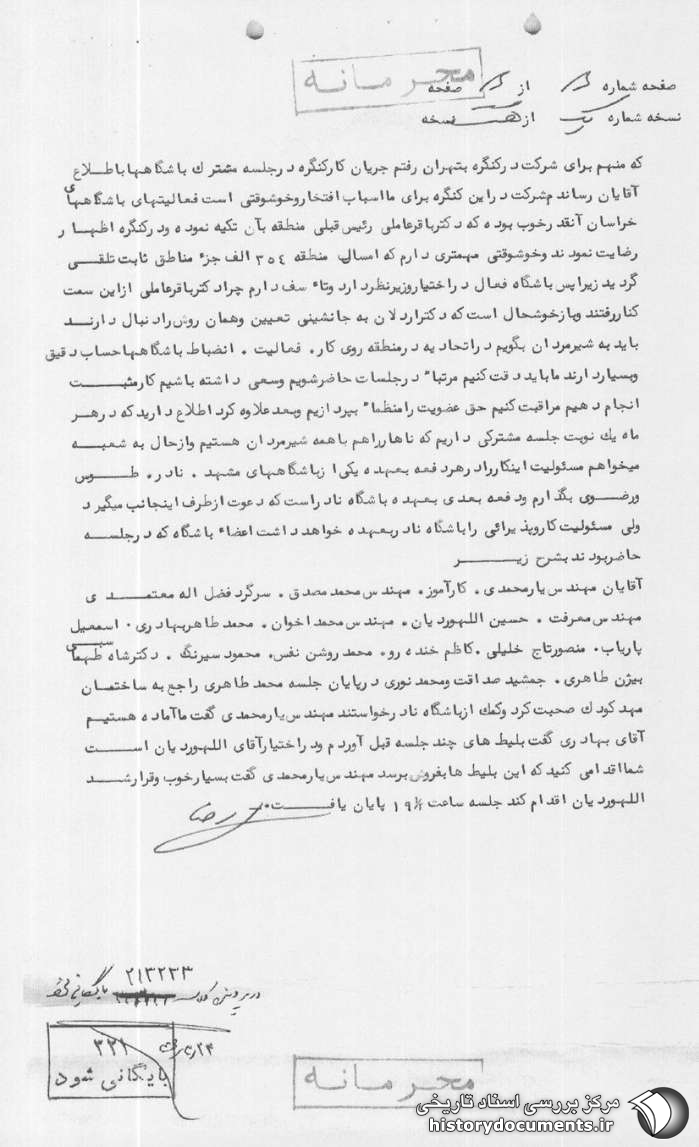 محرمانه
صفحه شماره از صفحه
نسخه شماره یک از نسخه
که منهم برای شرکت در کنگره بتهران رفتم جریان کار کنگره در جلسه مشترک باشگاهها باطلاع
آقایان رساندم شرکت در این کنگره برای ما اسباب افتخار وخوشوقتی است فعالیتهای باشگاههای
خراسان آنقدر خوب بوده که دکتر باقر عاملی رئیس قبلی منطقه بآن تکیه نموده ودر کنگره اظهار
رضایت نمودند وخوشوقتی مهمتری دارم که امسال منطقه ۳۵٤ الف جزء مناطق ثابت تلقی
گردید زیرا پس باشگاه فعال در اختیار وزیر نظر دارد وتاءسف دارم چرا دکتر باقر عاملی از این سمت
کنار رفتند وباز خوشحال است که دکتر اردلان به جانشینی تعیین وهمان روش را دنبال دارند
باید به شیرمردان بگویم در اتحادیه در منطقه روی کار . فعالیت . انضباط باشگاهها حساب دقیق
وبسیار دارند ما باید دقت کنیم مرتبا" در جلسات حاضر شویم وسعی داشته باشیم کار مثبت
انجام دهیم مراقبت کنیم حق عضویت را منظما" بپردازیم وبعد علاوه کرد اطلاع دارید که در هر
ماه یک نوبت جلسه مشترکی داریم که ناهار راهم باهمه شیرمردان هستیم واز حال به شعبه
میخواهم مسئولیت اینکار را در هر دفعه بعهده یکی از باشگاههای مشهد . نادر . طوس
ورضوی بگذارم ودفعه بعدی بعهده باشگاه نادر است که دعوت از طرف اینجانب میگیرد
ولی مسئولیت کار وپذیرائی را باشگاه نادر بعهده خواهد داشت اعضاء باشگاه که در جلسه
حاضر بودند بشرح زیر
آقایان مهندس یارمحمدی . کارآموز . مهندس محمد مصدق . سرگرد فضل اله معتمدی
مهندس معرفت . حسین اللهوردیان . مهندس محمد اخوان . محمد طاهر بهادری . اسمعیل
پاریاب . منصور تاج خلیلی . کاظم خنده رو . محمد روشن نفس . محمود سیرنگ . دکتر شاه طهماسبی
بیژن طاهری . جمشید صداقت ومحمد نوری در پایان جلسه محمد طاهری راجع به ساختمان
مهد کودک صحبت کرد وکمک از باشگاه نادر خواستند مهندس یارمحمدی گفت ما آماده هستیم
آقای بهادری گفت بلیط های چند جلسه قبل آوردم ودر اختیار آقای اللهوردیان است
شما اقدامی کنید که این بلیط ها بفروش برسد مهندس یارمحمدی گفت بسیار خوب وقرار شد
اللهوردیان اقدام کند جلسه ساعت ۱۹/۰ پایان یافت .
رضا
۲۱۳۲۳۳
در پرونده کلاسه بایگانی شود
۳۲۱
بایگانی شود
محرمانه
مرکز بررسی اسناد تاریخی
historydocuments.ir